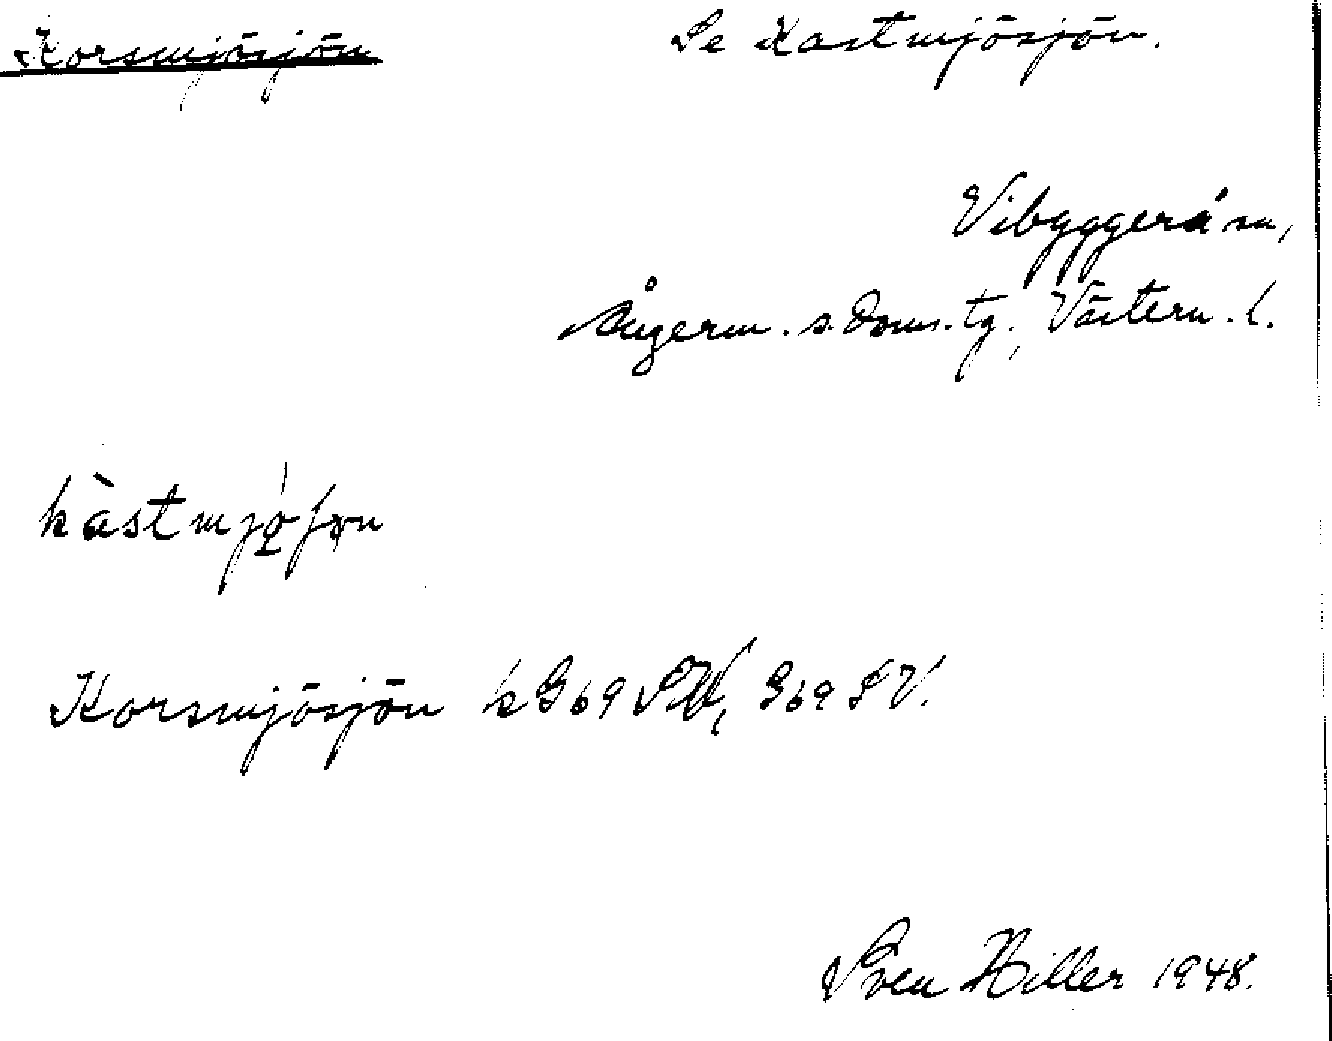 Korsmjösjön Se Kastmjösjön.
Vibyggerå sn,
Ångerm. s. doms. tg., Västern. l.
kàstmjo̱ʃɷn
Korsmjösjön k G69 SV, G69 SV.
Sven Hiller 1948.